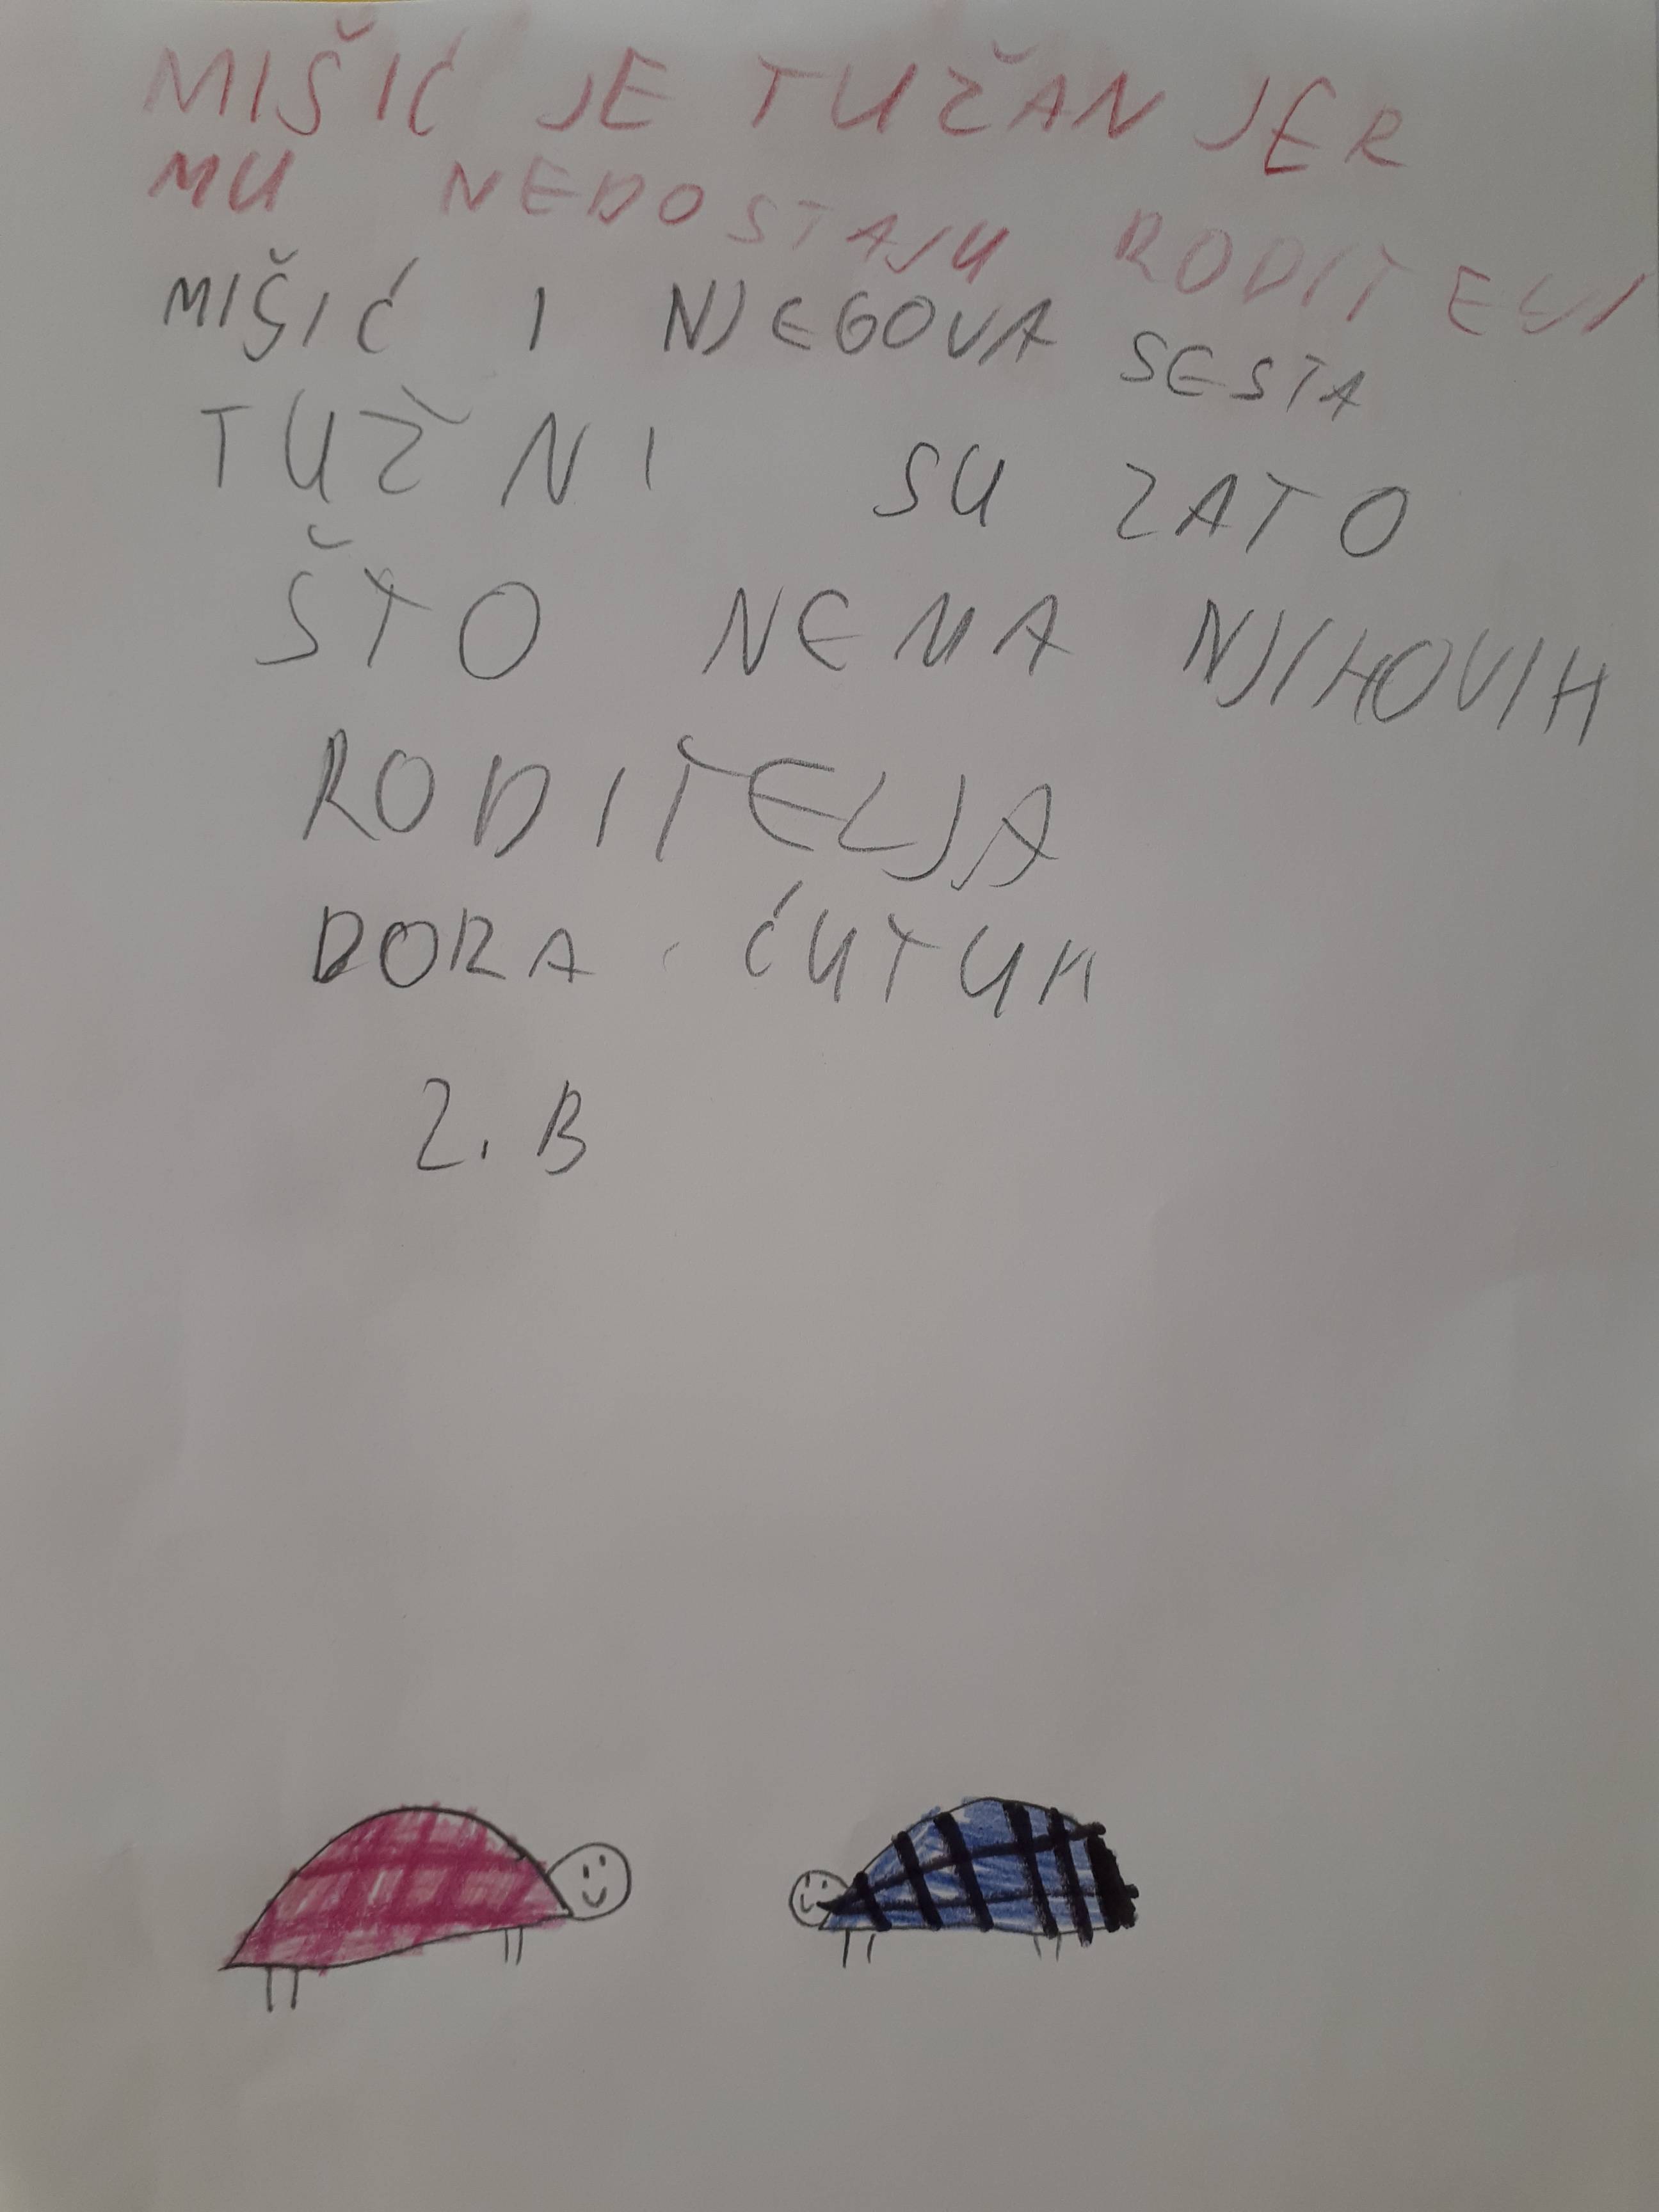 MIŠIĆ JE TUŽAN JER
MU NEDOSTAJU RODITELJI
MIŠIĆ I NJEGOVA SESTA
TUŽNI SU ZATO
ŠTO NEMA NJIHOVIH
RODITELJA
DORA ĆUTUK
2. B